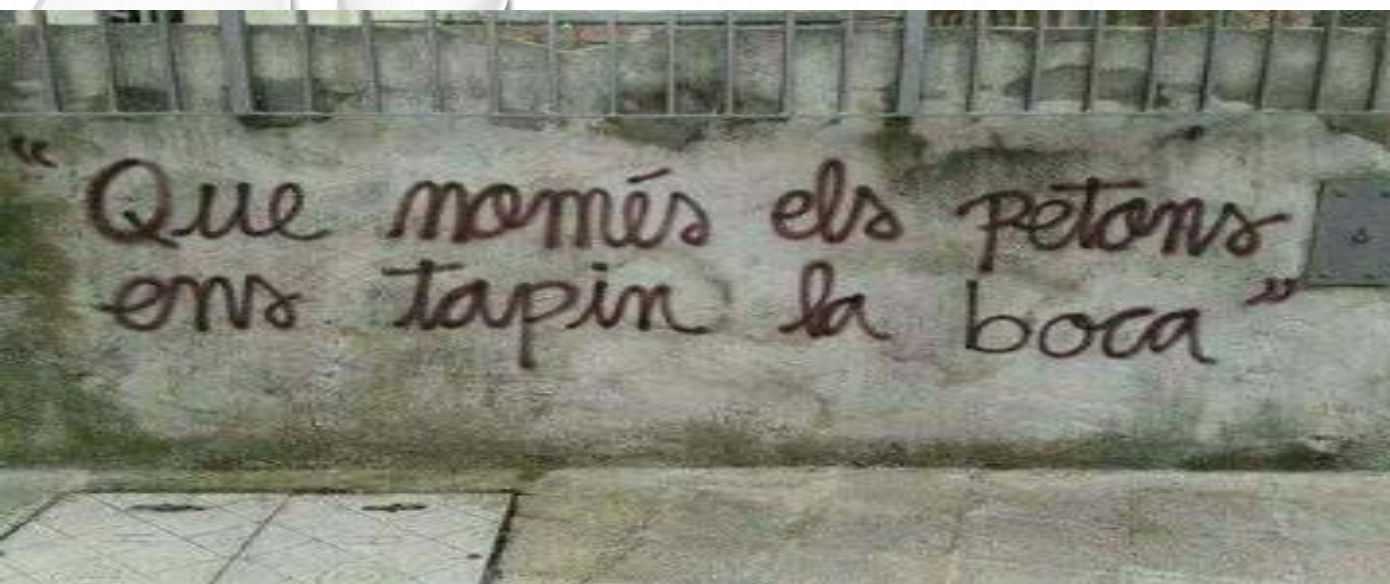 “Que només els petons
ens tapin la boca”